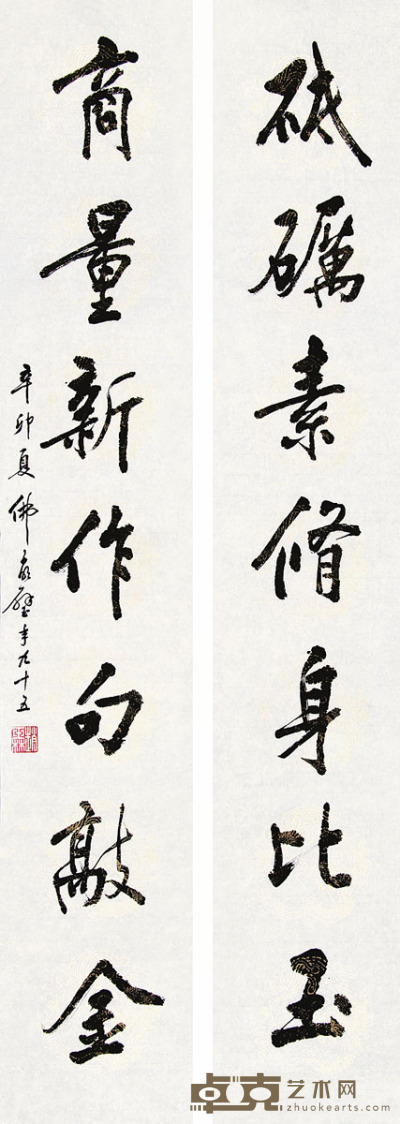 砥礪素脩身比玉
商量新作句敲金
辛卯夏佛年九十五
卓克艺术网
zhuokearts.com